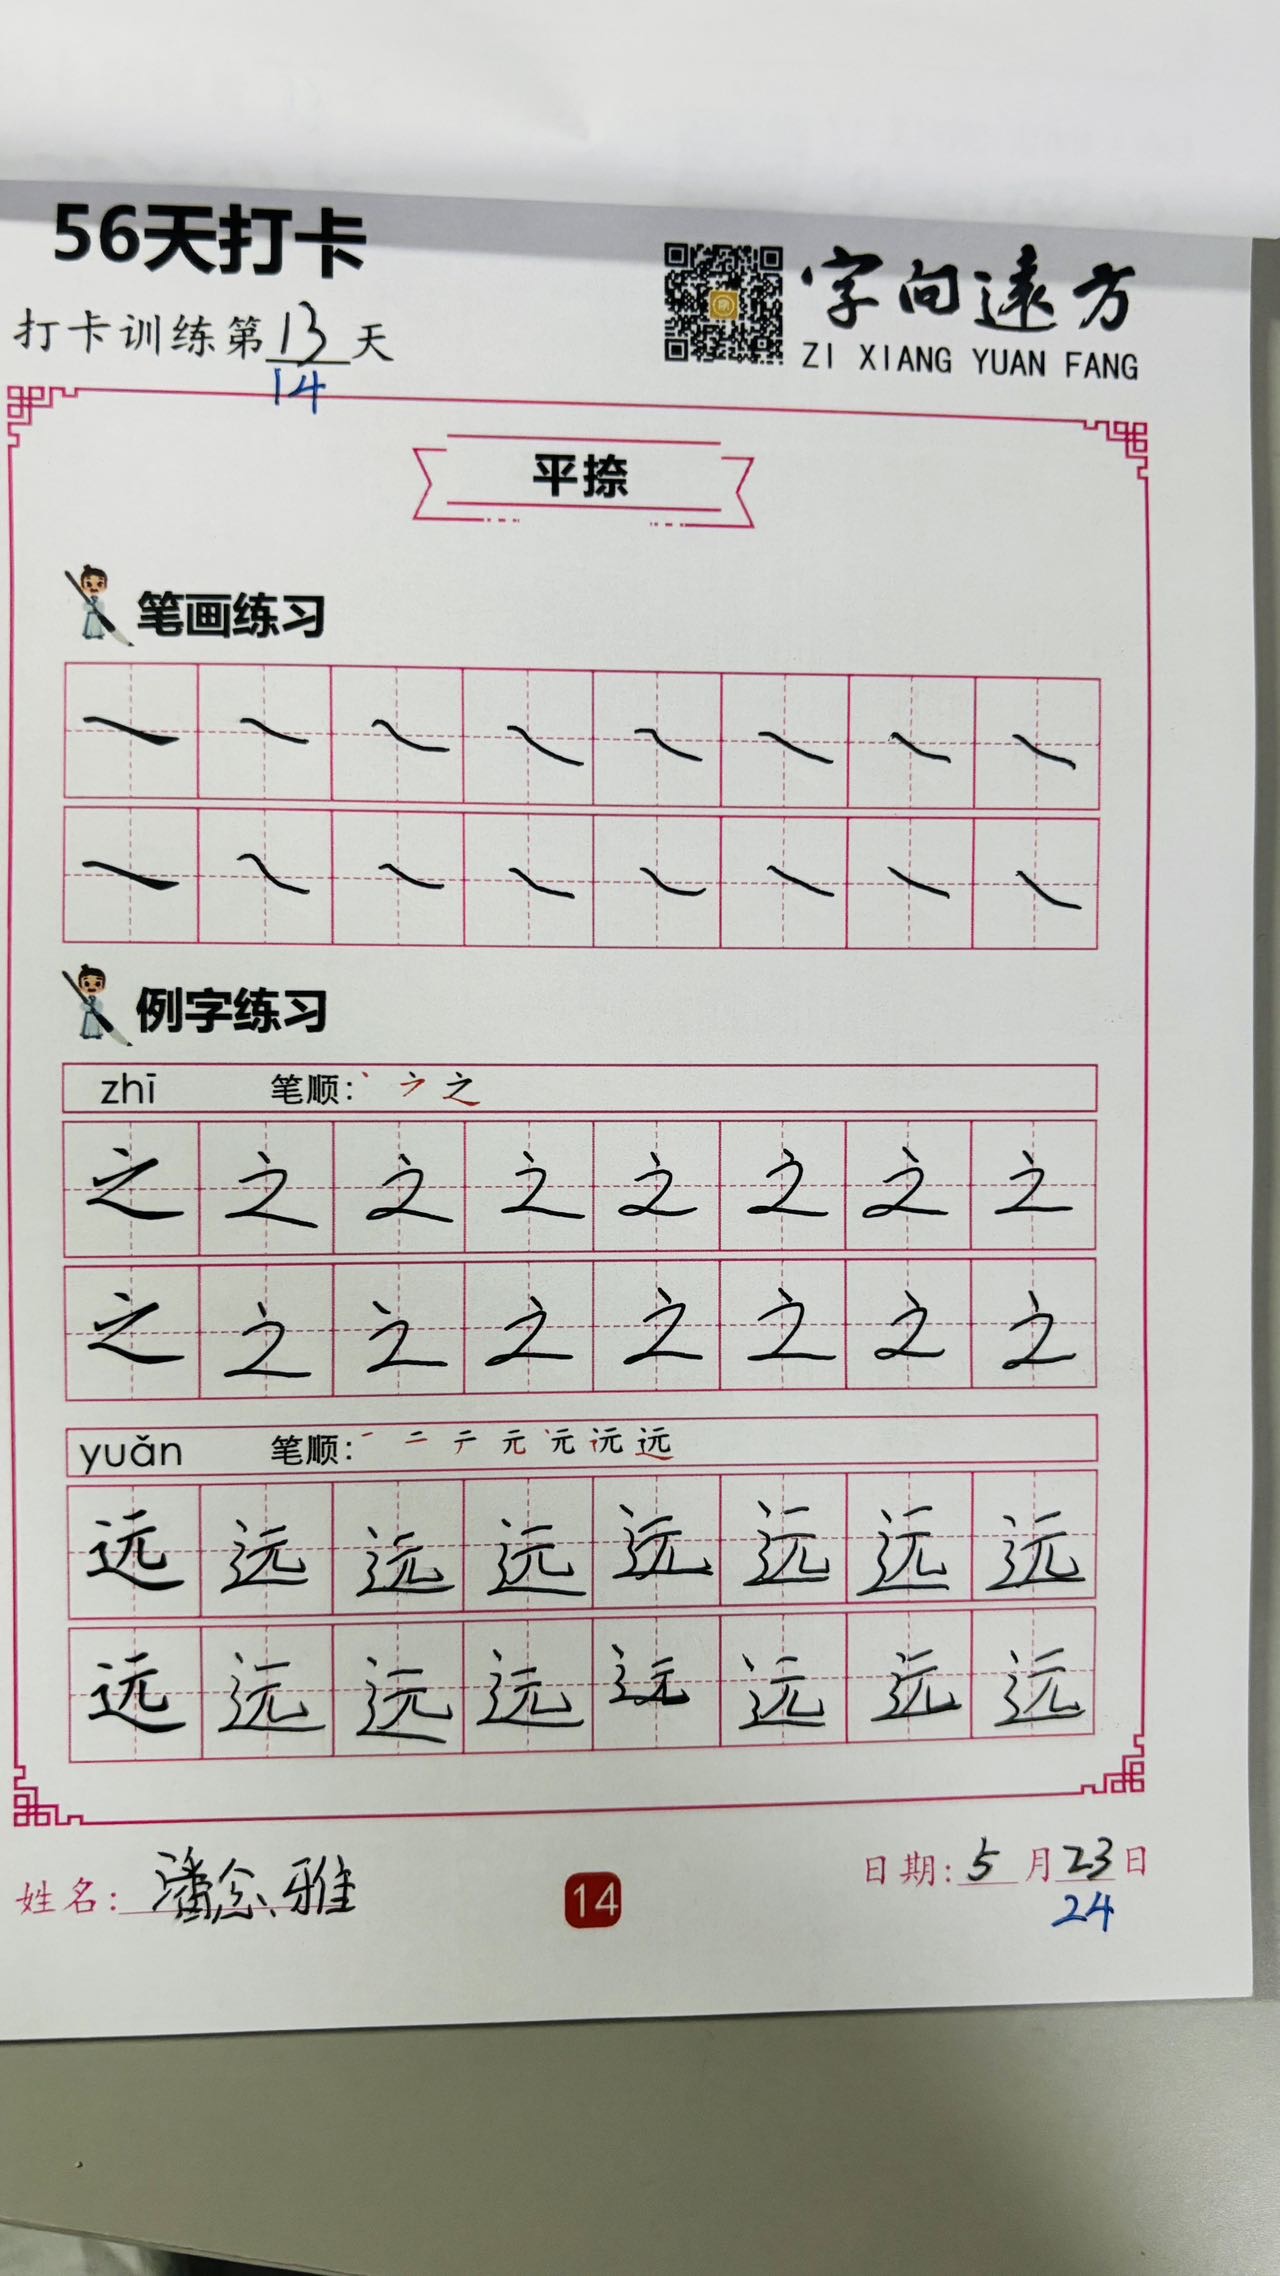 56天打卡
字向遠方
ZI XIANG YUAN FANG
打卡训练第13天
14
平捺
笔画练习
例字练习
zhī 笔顺: 丶 ㇇ 之
之 之 之 之 之 之 之 之
之 之 之 之 之 之 之 之
yuǎn 笔顺: 一 二 テ 元 远 远 远
远 远 远 远 远 远 远 远
远 远 远 远 远 远 远 远
姓名: 潘念雅
14
日期: 5月23日
24